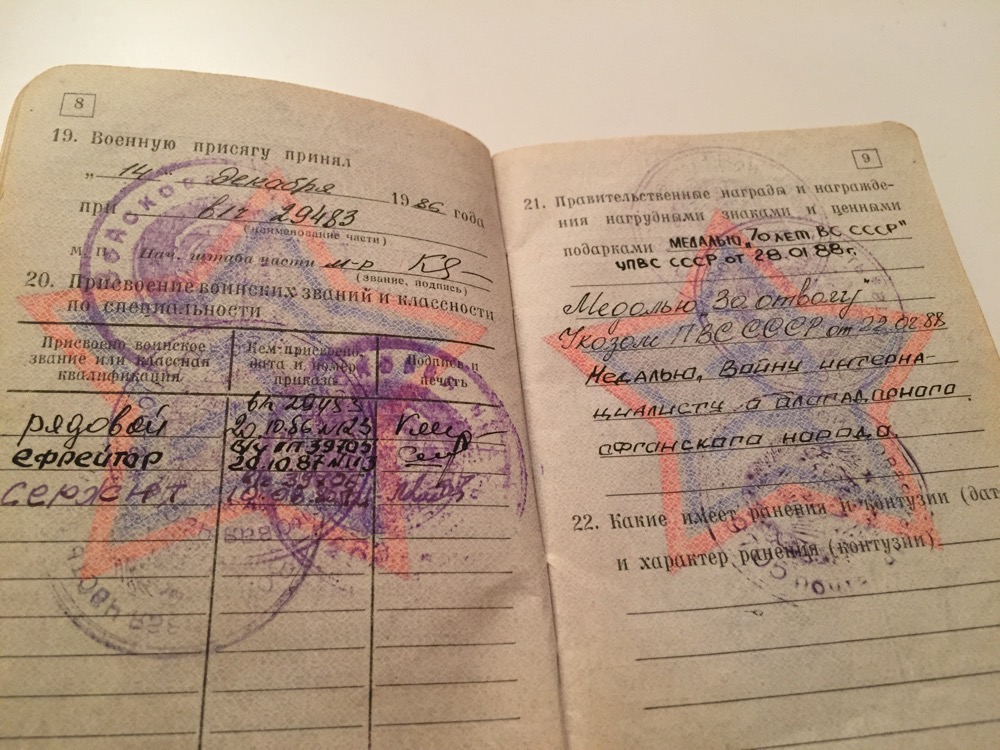 8
19. Военную присягу принял
„ 14 " декабря 1986 года
при в/ч 29483
(наименование части)
м. п. Нач. штаба части м-р
(звание, подпись)
20. Присвоение воинских званий и классности
по специальности
Присвоено воинское
звание или классная
квалификация
Кем присвоено,
дата и номер
приказа
Подпись и
печать
вч 29483
рядовой 20.10.86 №123
ефрейтор
20.10.87
сержант
9
21. Правительственные награды и награжде-
ния нагрудными знаками и ценными
подарками МЕДАЛЬЮ „70 ЛЕТ ВС СССР"
УПВС СССР от 28.01.88г.
Медалью За отвагу"
Указом ПВС СССР от 22.02.88
Медалью, Войну интерна-
циалисту о благодарного
афганского народа.
22. Какие имеет ранения и контузии (дат
и характер ранения (контузии)